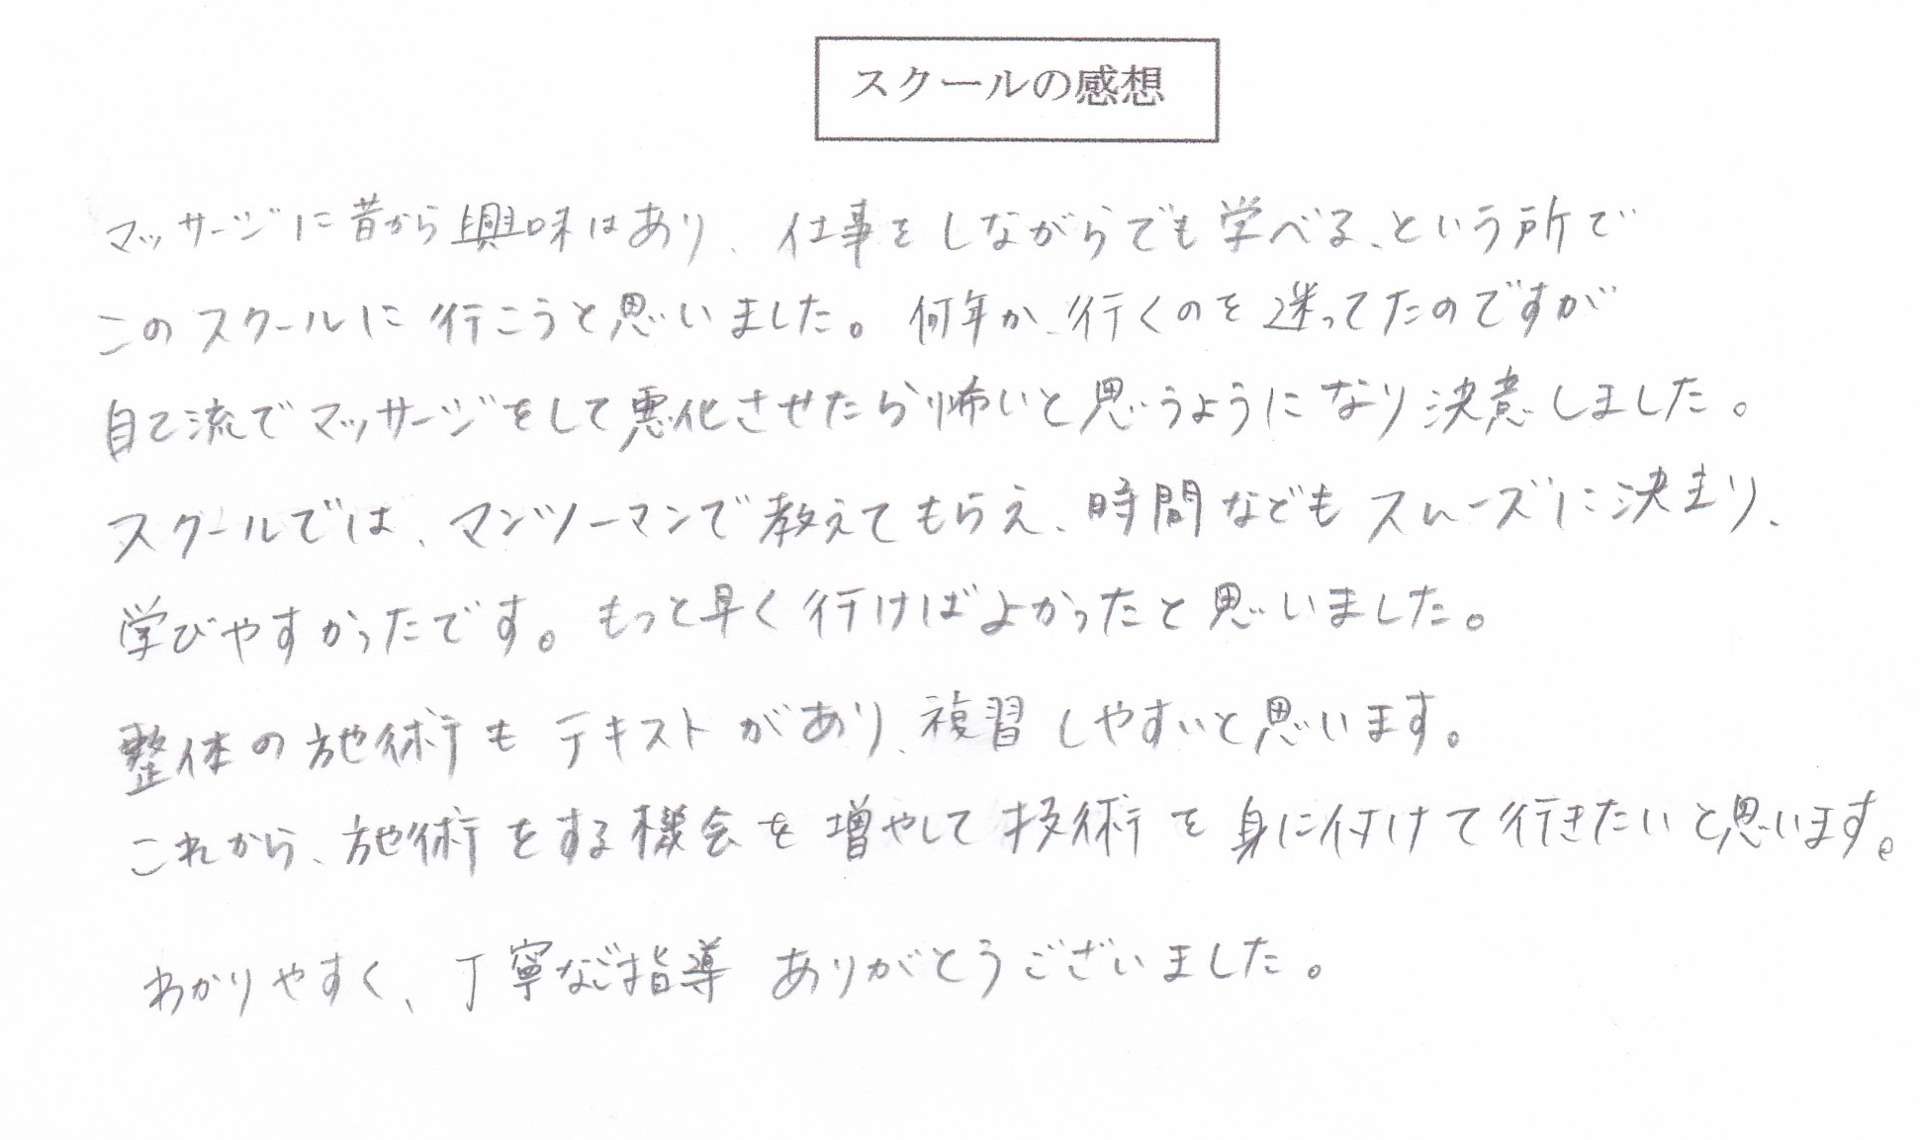 スクールの感想
マッサージに昔から興味はあり、仕事をしながらでも学べる、という所で
このスクールに行こうと思いました。何年か、行くのを迷ってたのですが
自己流でマッサージをして悪化させたら怖いと思うようになり決意しました。
スクールでは、マンツーマンで教えてもらえ、時間などもスムーズに決まり、
学びやすかったです。もっと早く行けばよかったと思いました。
整体の施術もテキストがあり、複習しやすいと思います。
これから、施術をする機会を増やして技術を身に付けて行きたいと思います。
わかりやすく、丁寧なご指導ありがとうございました。